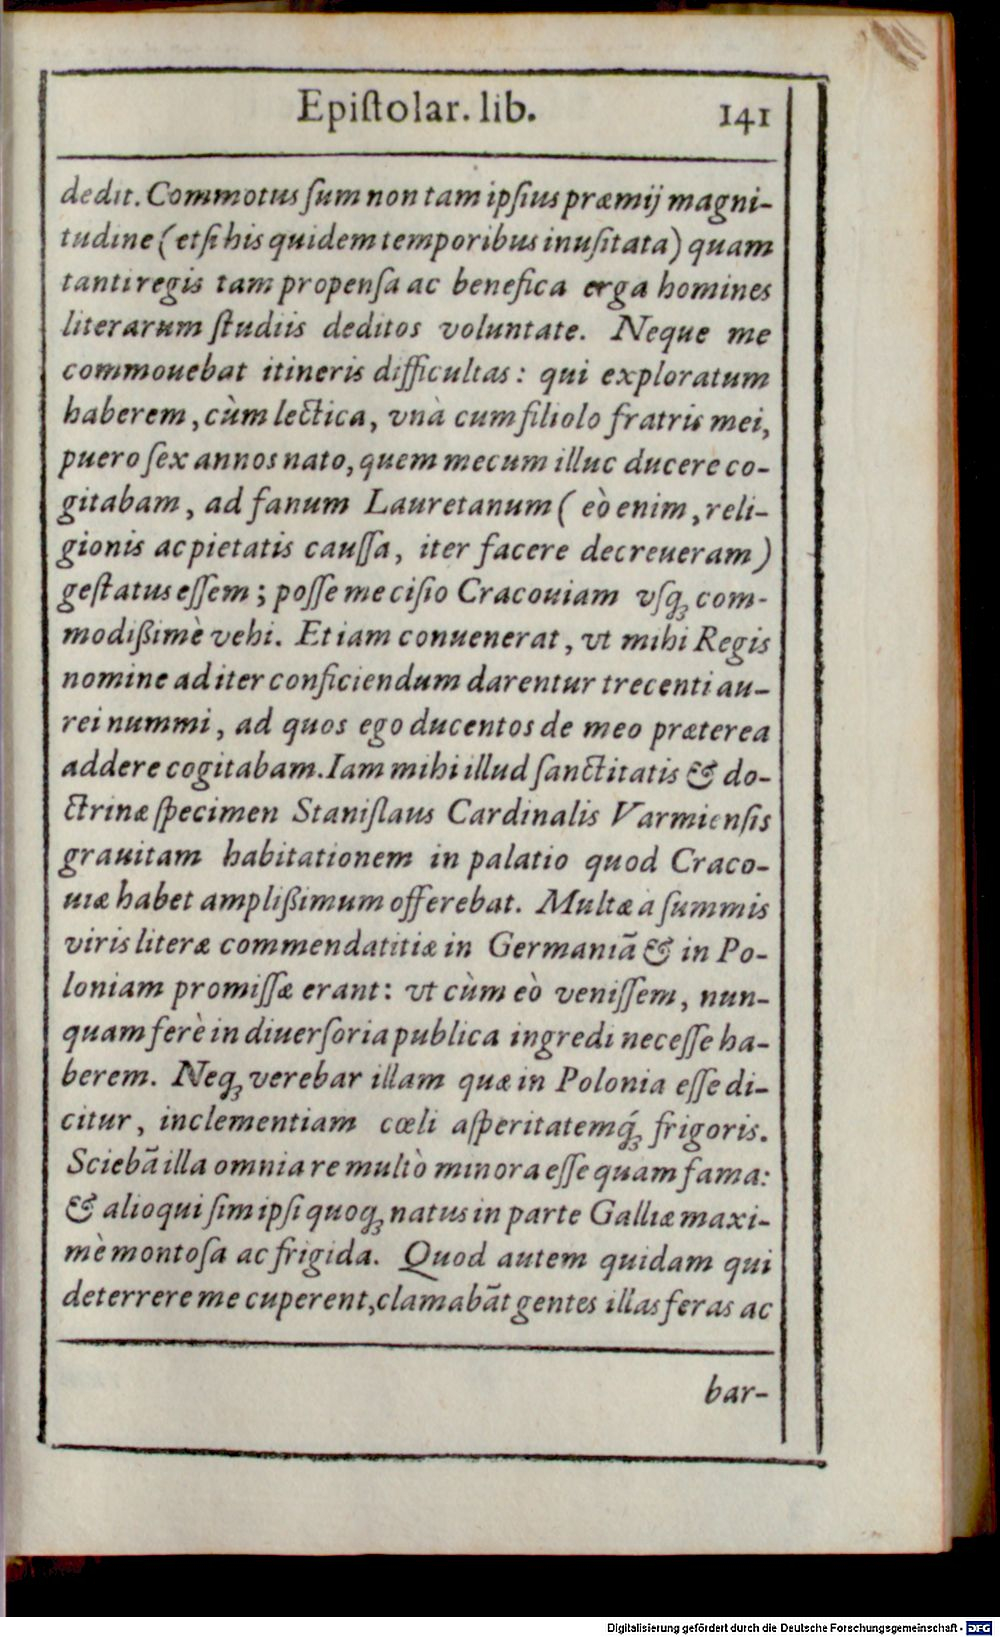 Epiſtolar. lib. 141
dedit. Commotus ſum non tam ipſius præmij magni-
tudine (etſi his quidem temporibus inuſitata) quam
tanti regis tam propenſa ac benefica erga homines
literarum ſtudiis deditos voluntate. Neque me
commouebat itineris difficultas: qui exploratum
haberem, cùm lectica, vnà cum filiolo fratris mei,
puero ſex annos nato, quem mecum illuc ducere co-
gitabam, ad fanum Lauretanum ( eò enim, reli-
gionis ac pietatis cauſſa, iter facere decreueram)
geſtatus eſſem; poſſe me ciſio Cracouiam vſq; com-
modißimè vehi. Etiam conuenerat, vt mihi Regis
nomine ad iter conficiendum darentur trecenti au-
rei nummi, ad quos ego ducentos de meo præterea
addere cogitabam. Iam mihi illud ſanctitatis & do-
ctrinæ ſpecimen Staniſlaus Cardinalis Varmienſis
grauitam habitationem in palatio quod Craco-
uiæ habet amplißimum offerebat. Multæ a ſummis
viris literæ commendatitiæ in Germaniã & in Po-
loniam promiſſæ erant: vt cùm eò veniſſem, nun-
quam ferè in diuerſoria publica ingredi neceſſe ha-
berem. Neq; verebar illam quæ in Polonia eſſe di-
citur, inclementiam cœli aſperitatemq́; frigoris.
Sciebã illa omnia re multò minora eſſe quam fama:
& alioqui ſim ipſi quoq; natus in parte Galliæ maxi-
mè montoſa ac frigida. Quod autem quidam qui
deterrere me cuperent, clamabãt gentes illas feras ac
bar-
Digitalisierung gefördert durch die Deutsche Forschungsgemeinschaft - DFG